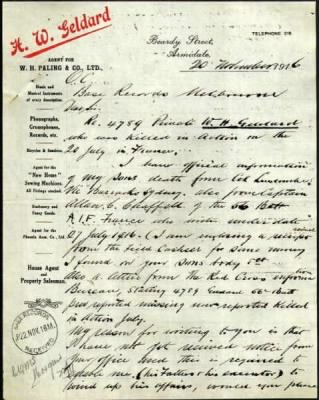 H. W. Geldard
TELEPHONE 218
Beardy Street,
Armidale,
20 November 1916
AGENT FOR
W. H. PALING & CO., LTD.,
Music and
Musical Instruments
of every description.
Phonographs,
Gramophones,
Records, etc.
Bicycles & Sundries.
Agent for the
"New Home"
Sewing Machines
All Things for all
Machines.
Stationery and
Fancy Goods.
Agent for the
Phoenix Assn. Co., Ltd.
House Agent
and
Property Salesman.
O.C.
Base Records Melbourne
Dear Sir
Re. 4789 Private W. H. Geldard
who was killed in Action on the
20 July in France.
I have official information
of my Sons death from
The Barracks Sydney. also from Captain
Allan C. Chaffell of the 56 Batt
A.I.F. France who writes under date
27 July 1916. (I am enclosing a receipt
from the field Cashier for some money
I found on your sons body
Also a letter from the Red Cross information
Bureau, Stating 4789
prev reported missing now reported Killed
in Action July.
My reason for writing to you is that
I have not got received notice from
your office and this is required to
enable me (his Father & his executor) to
wind up his affairs, would you please
BASE RECORDS
22 NOV. 1916
RECEIVED